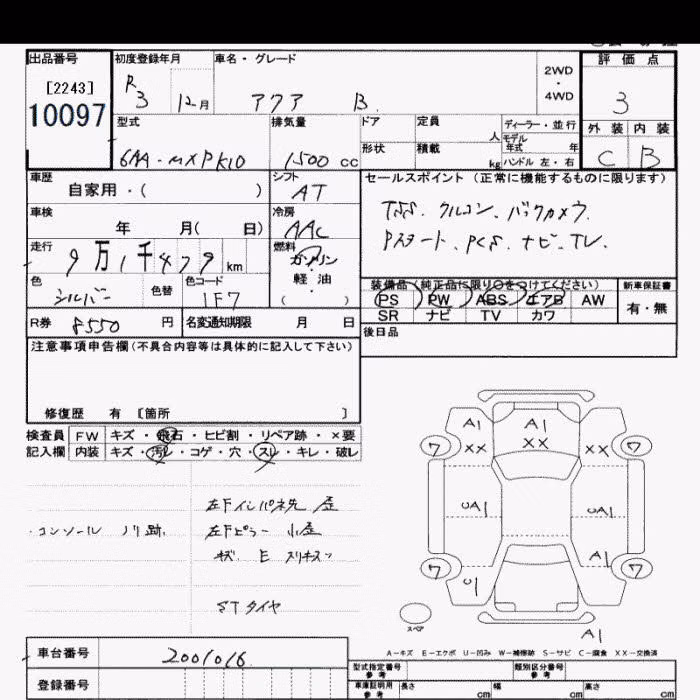 出品番号 初度登録年月 車名・グレード 2WD・4WD 評価点
[2243] R 3 12月 アクア B 3
10097
型式 排気量 ドア 定員 人 ディーラー・並行 外装 内装
モデル年式 年
6AA-MXPK10 1500cc 形状 積載 kg ハンドル 左・右 C B
車歴 シフト セールスポイント(正常に機能するものに限ります)
自家用・( ) AT
TSS. クルコン. バックカメラ.
車検 冷房
年 月( 日) AAC
Pスタート. PCS. ナビ. TV.
走行 燃料
9万1千479km ガソリン・軽油
( )
色 色替 色コード 装備品(純正品に限り○をつけてください) 新車保証書
シルバー 1F7 PS PW ABS エアB AW 有・無
SR ナビ TV カワ
R券 8550円 名変通知期限 月 日 後日品
注意事項申告欄(不具合内容等は具体的に記入して下さい)
修復歴 有 〔箇所 〕
検査員 FW キズ・飛石・ヒビ割・リペア跡・×要
記入欄 内装 キズ・汚レ・コゲ・穴・スレ・キレ・破レ
左Fインパネ先 歪
・コンソール ノリ跡. 左Fピラー 小歪
キズ E スリキズ
STタイヤ
A1 A1
XX XX XX
ワ ワ
UA1 UA1
A1
ワ ワ
U1
スペア
A1
A−キズ E−エクボ U−凹み W−補修跡 S−サビ C−腐食 XX−交換済
車台番号 2001016 型式指定番号 参考 類別区分番号 参考
登録番号 車庫証明用 参考 長さ cm 幅 cm 高さ cm